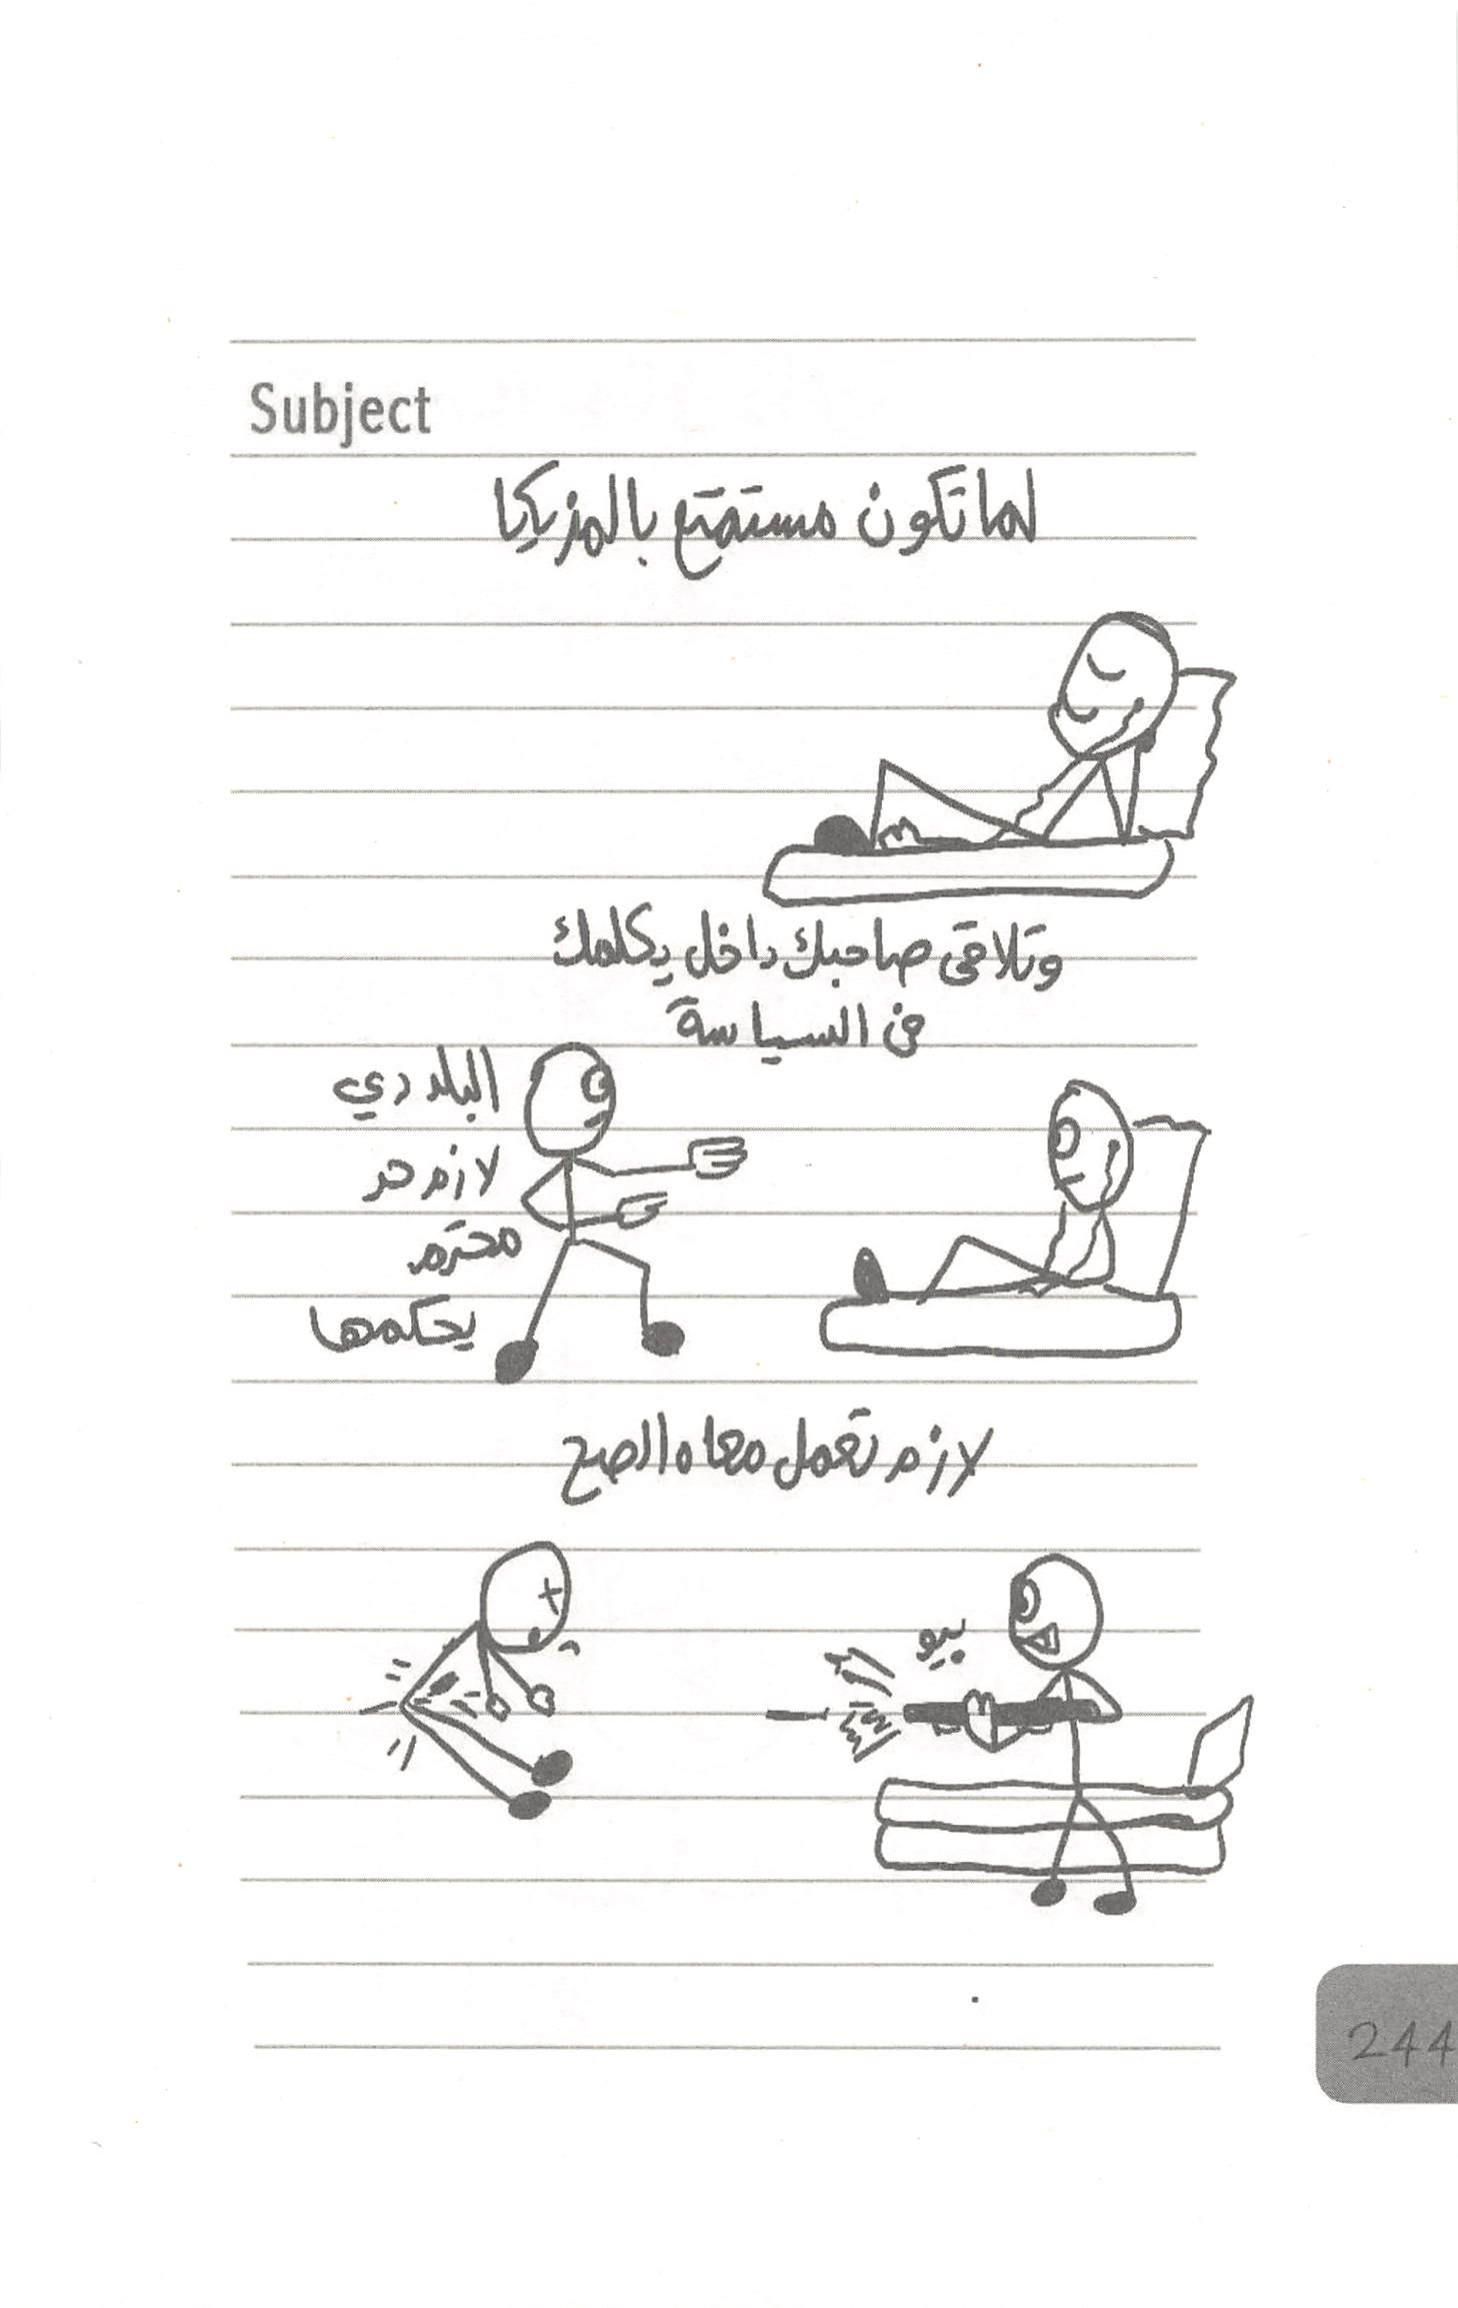 Subject
لما تكون مستمتع بالمزيكا
وتلاقى صاحبك داخل يكلمك
فى السياسة
البلد دي
لازم حد
محترم
يحكمها
لازم تعمل معاه الصح
بيو
244